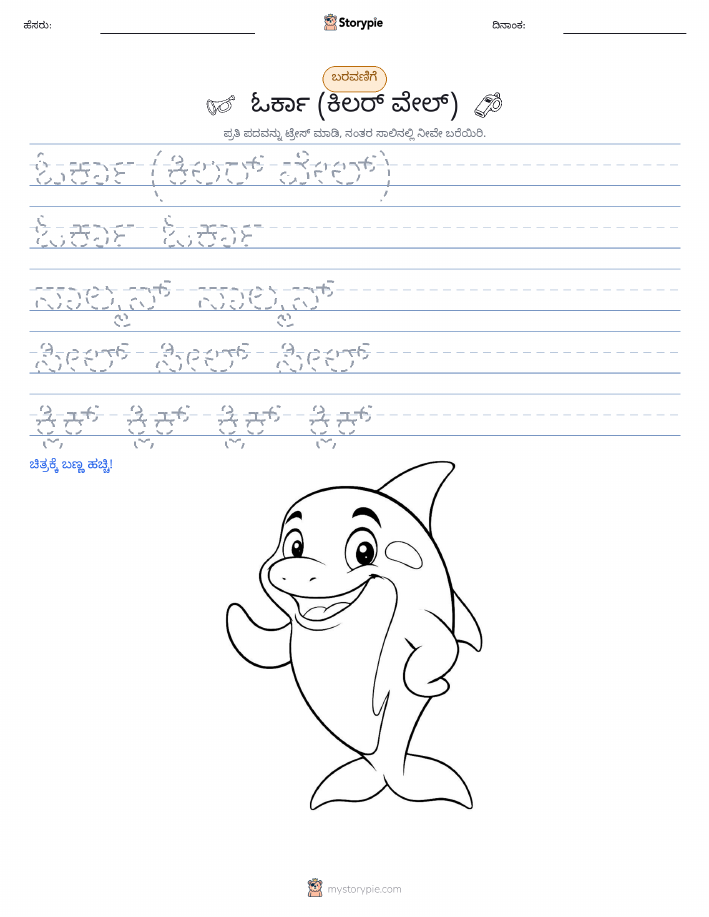 ಹೆಸರು: Storypie ದಿನಾಂಕ:
ಬರವಣಿಗೆ
ಓರ್ಕಾ (ಕಿಲರ್ ವೇಲ್)
ಪ್ರತಿ ಪದವನ್ನು ಟ್ರೇಸ್ ಮಾಡಿ, ನಂತರ ಸಾಲಿನಲ್ಲಿ ನೀವೇ ಬರೆಯಿರಿ.
ಓರ್ಕಾ (ಕಿಲರ್ ವೇಲ್)
ಓರ್ಕಾ ಓರ್ಕಾ
ಸಾಲ್ಮನ್ ಸಾಲ್ಮನ್
ಸೀಲ್ ಸೀಲ್ ಸೀಲ್
ಕ್ಲಿಕ್ ಕ್ಲಿಕ್ ಕ್ಲಿಕ್ ಕ್ಲಿಕ್
ಚಿತ್ರಕ್ಕೆ ಬಣ್ಣ ಹಚ್ಚಿ!
mystorypie.com